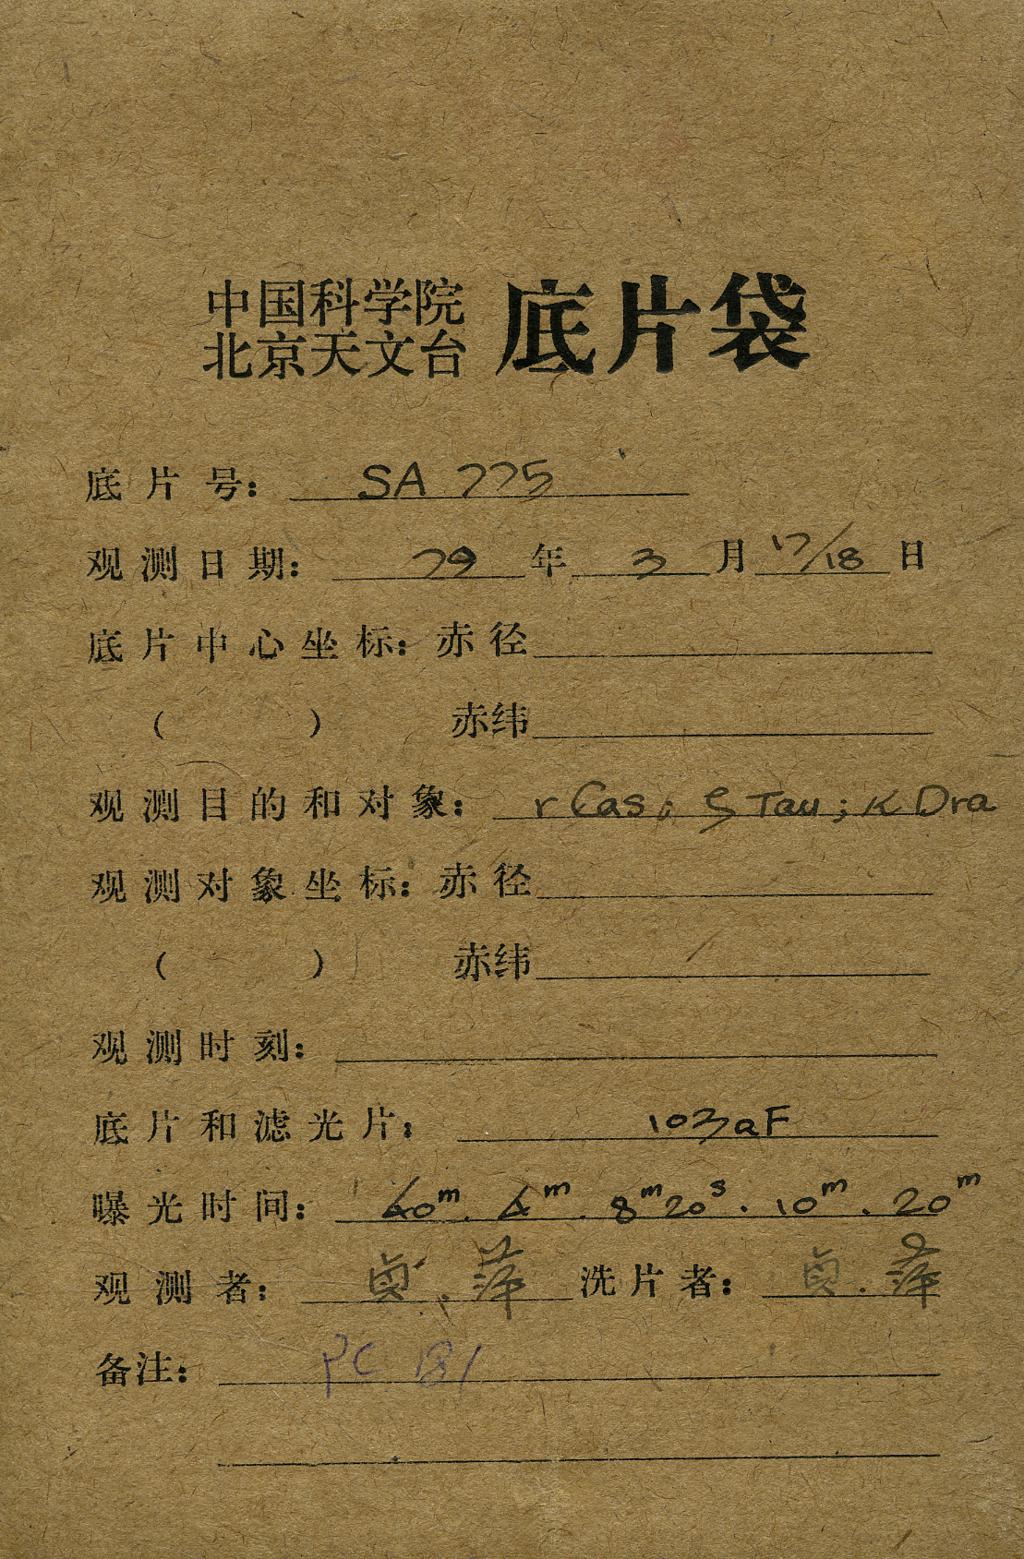 中国科学院
北京天文台 底片袋
底片号： SA 775
观测日期： 79 年 3 月 17/18 日
底片中心坐标：赤径
（ ） 赤纬
观测目的和对象： r Cas; ζ Tau; K Dra
观测对象坐标：赤径
（ ） 赤纬
观测时刻：
底片和滤光片： 103aF
曝光时间： 40ᵐ. 4ᵐ. 8ᵐ20ˢ. 10ᵐ. 20ᵐ
观测者： 贞、萍 洗片者： 贞.萍
备注： PC 181